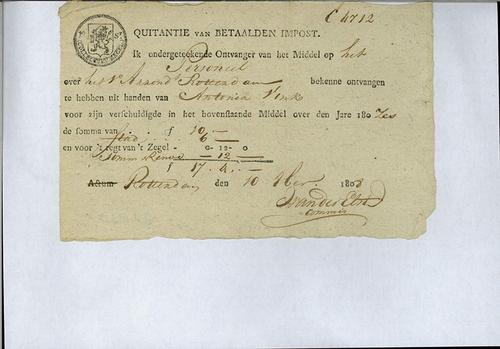 C 4712
QUITANTIE VAN BETAALDEN IMPOST.
Ik ondergeteekende Ontvanger van het Middel op het
Personeel
over het Rotterdam bekenne ontvangen
te hebben uit handen van Antonia Vink
voor zijn verschuldigde in het bovenstaande Middel over den Jare 180 Zes
de somma van f 10
stad 6
en voor 't regt van 't Zegel - 0-12-0
12
f 17. 4.
Actum Rotterdam den 10 180
commis